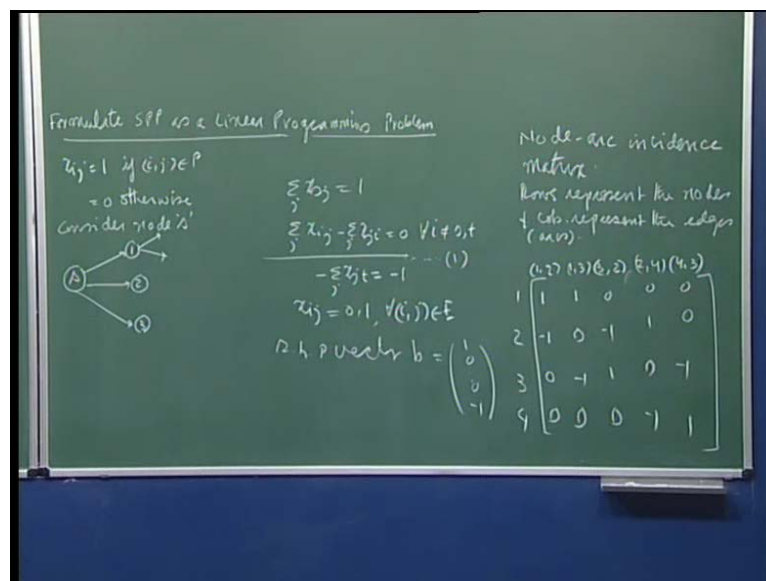 Formulate SPP as a Linear Programming Problem
xij = 1 if (i,j) ∈ P
= 0 otherwise
Consider node 's'
s
1
2
3
Σj xsj = 1
Σj xij - Σj xji = 0 ∀ i ≠ s,t
--- (1)
-Σj xjt = -1
xij = 0,1, ∀(i,j) ∈ E
r.h.s vector b = (1 0 0 -1)
Node-arc incidence
matrix.
Rows represent the nodes
& cols. represent the edges
(arcs).
(1,2) (1,3) (3,2) (2,4) (4,3)
1 1 1 0 0 0
2 -1 0 -1 1 0
3 0 -1 1 0 -1
4 0 0 0 -1 1